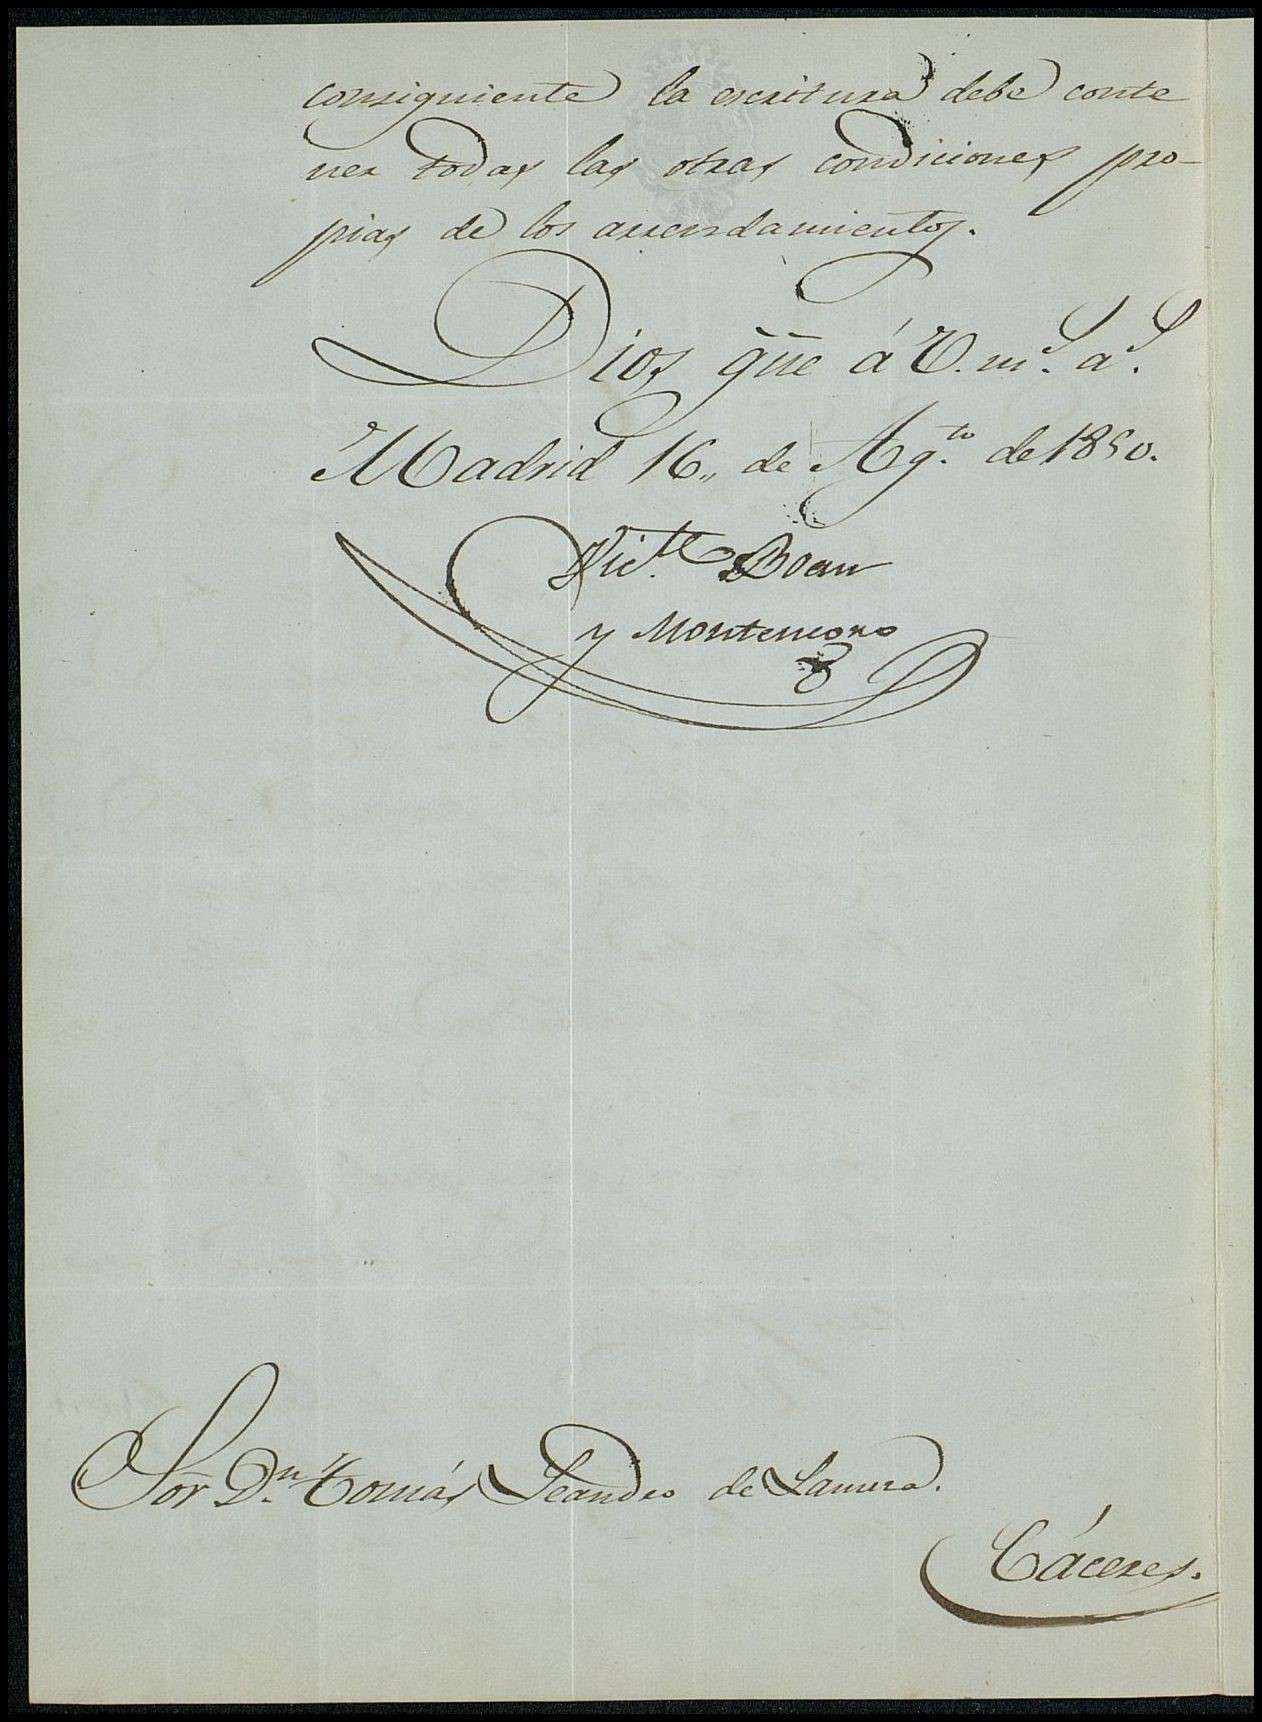 consiguiente la escritura debe conte
ner todas las otras condiciones pro-
pias de los arrendamientos.
Dios güe á V. m.s a.s
Madrid 16,, de Ag.to de 1850.
Vic.te Boan
y Montenegro
Sor. D.n Tomás Leandro de Lamera.
Cáceres.